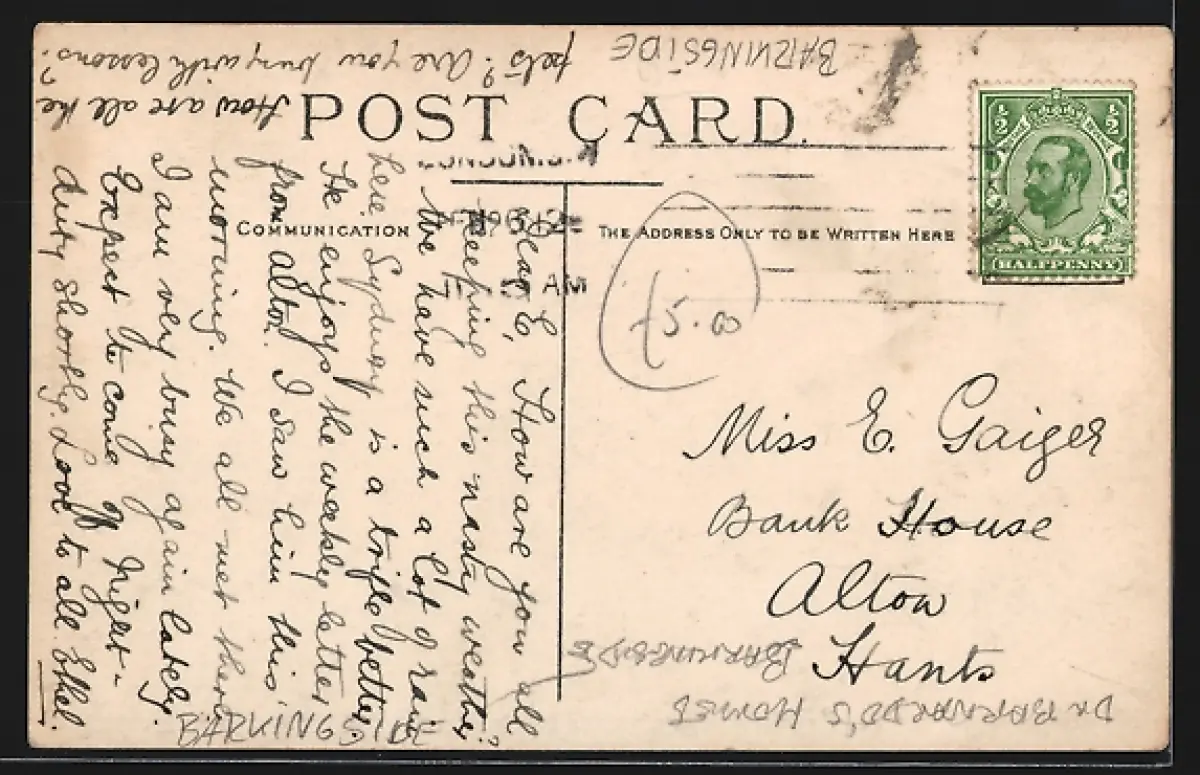 POST CARD.
COMMUNICATION
THE ADDRESS ONLY TO BE WRITTEN HERE
½ ½
HALFPENNY
AM
£5.00
Miss E. Gaiger
Bank House
Alton
Hants
Dear E, How are you all
keeping this nasty weather?
We have such a lot of rain
here. Sydney is a trifle better,
He enjoys the weekly letter
from Alton. I saw him this
morning. We all met there
I am very busy again lately.
Expect to come off Night-
duty shortly. Love to all Ethel.
How are all the
pets? Are you busy with lessons?
BARKINGSIDE
BARKINGSIDE
BARKINGSIDE
DR BARNARDO'S HOMES